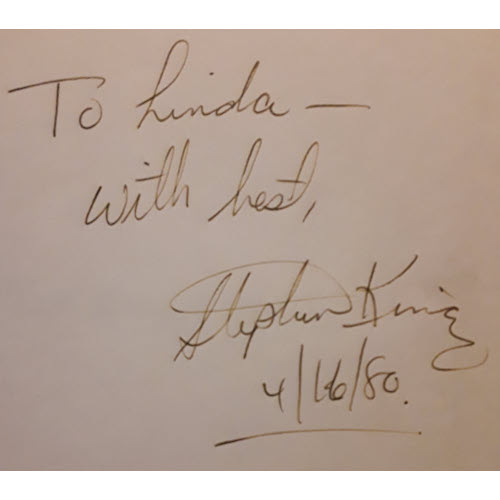 To Linda —
with best,
Stephen King
4/16/80.